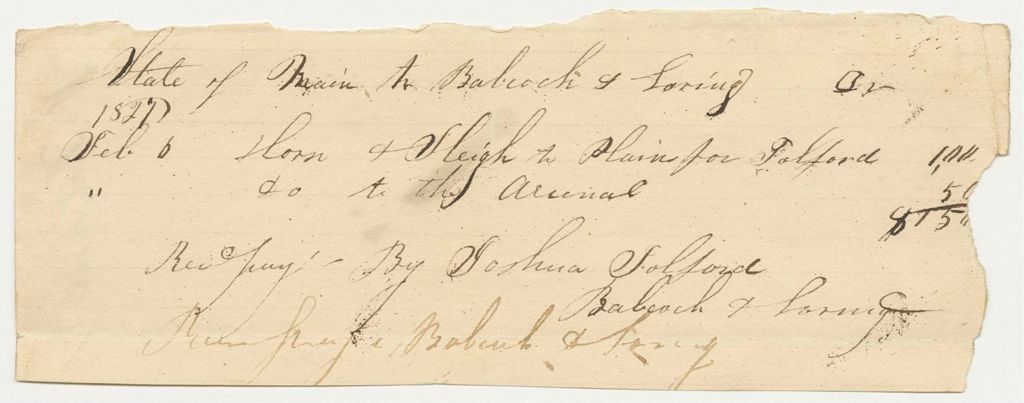 State of Main to Babcock & Loring Dr
1827
Feb 6 Hors & Sleigh to Plains for Tolford 1,00
" do to the Arsenal 50
$1 50
Recd pay By Joshua Tolford
Babcock & Loring
Babcock & Loring